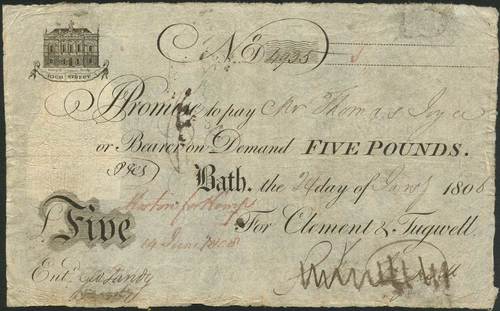 HIGH STREET
No 4935
I Promise to pay Mr Thomas Joyce
or Bearer on Demand FIVE POUNDS.
Bath. the day of Jany 1808
For Clement & Tugwell.
£ Five
19 June 1808
Entd.